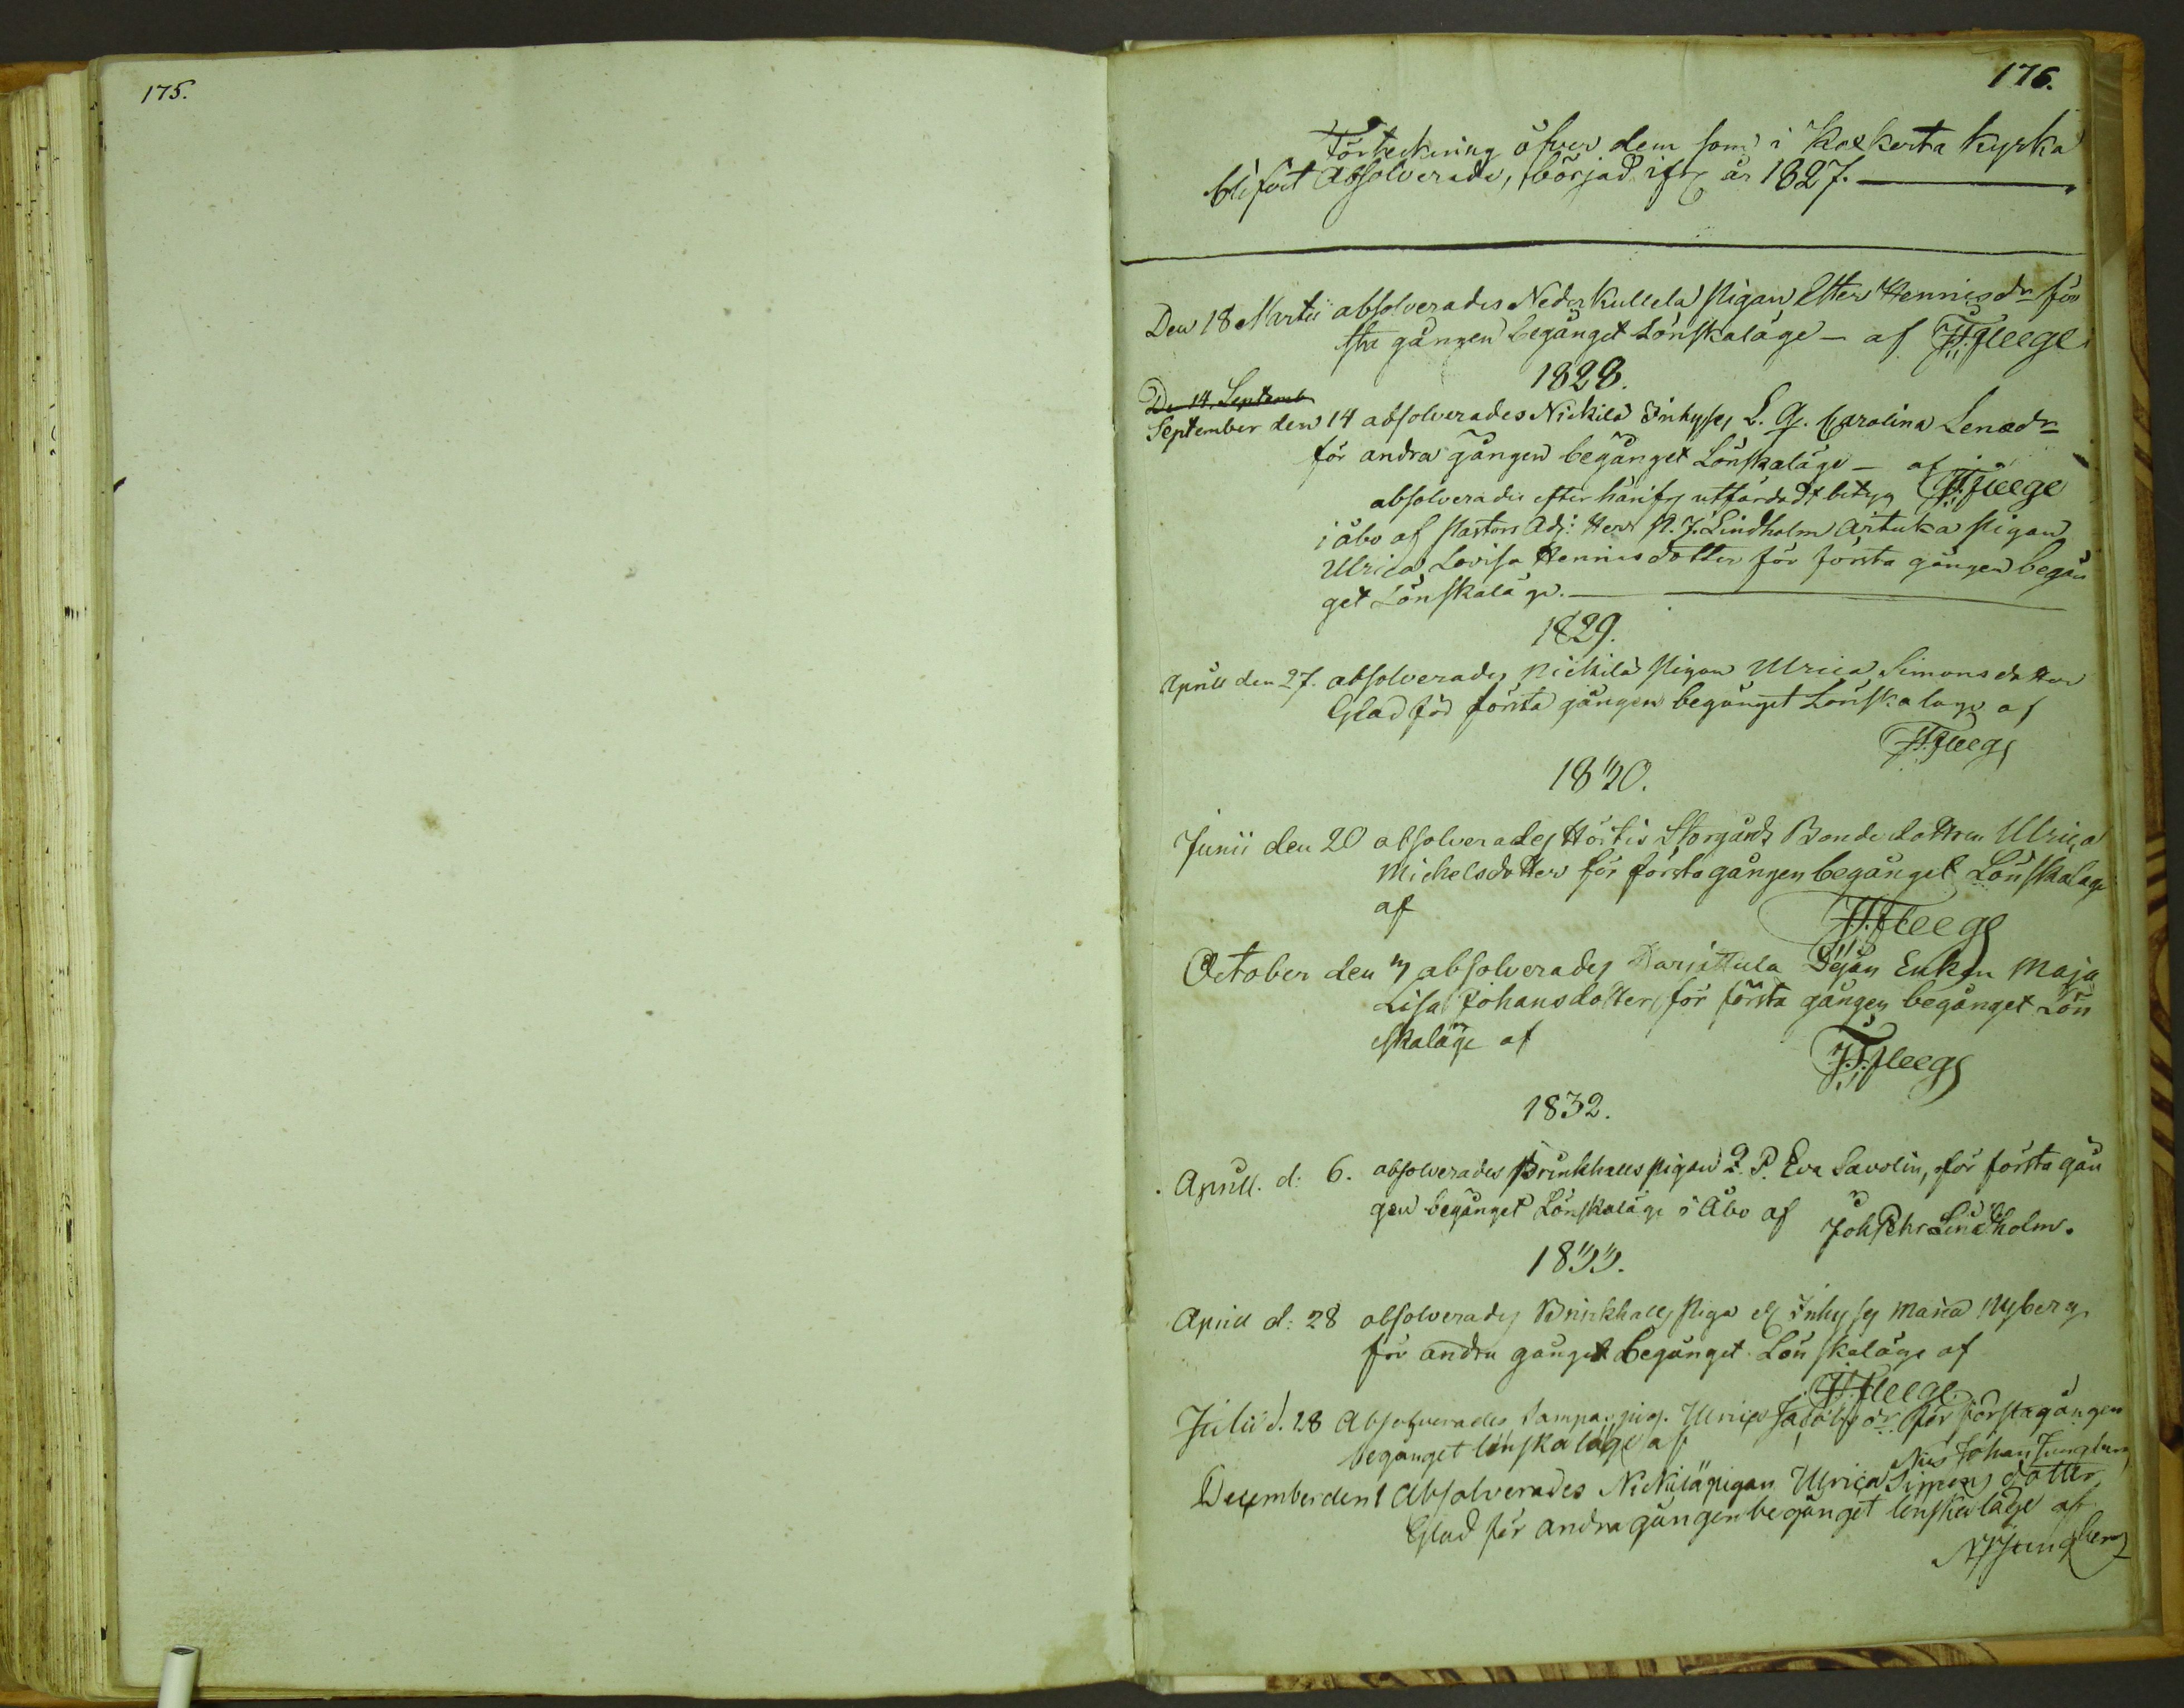 175.
176.
Förteckning öfver dem som i Kaxkerta Kyrka
blifvit Absolverade, börjad ifr. år 1827.
Den 18 Martii absolverades Neder Kullela Pigan Ester Hennisdr för
sta gången begånget Lönskaläge – af H. Fleege
1828.
De 14. Septemb
September den 14 absolverades Nickilä Inhyses L. Q. Carolina Lenædr
för andra gången begånget Lönskaläge – af
absolverades efter härifr. utfärdadt betyg H. Fleege
i åbo af Pastors Adj: Herr P. J. Lindholm Artuka Pigan
Ulrica Lovisa Hennisdotter för första gången begån
get Lönskaläge.
1829.
Aprill den 27. absolverades Nickilä Pigan Ulrica Simonsdotter
Glad för första gången begånget Lönskaläge af
H. Fleege
1830.
Junii den 20 absolverades Höitis Storgårds Bondedottren Ulrica
Michelsdotter för första gången begånget Lönskaläge
af H. Fleege
October den 3 absolverades Darjättula Enkan Maja
Lisa Johansdotter för första gången begånget Lön
skaläge af H. Fleege
1832.
Aprill. d: 6. absolverades Brinkhalls pigan Q. P. Eva Savolin, för första gån
gen begånget Lönskaläge i Åbo af Joh Pehr Lindholm.
1833.
Aprill d: 28 absolverades Brinkhalls Piga o. Inhyses Maria Nyberg
för andra gånget begånget Lönskaläge af
H. Fleege
Julii d. 28 Absolverades Sampa pig. Ulrica för första gången
begånget lönskaläge af Nils Johan Ljungberg
December den 1 Absolverades Nickilä pigan Ulrica Simons dotter
Glad för andra gången begånget lönskaläge af
NJLjungberg